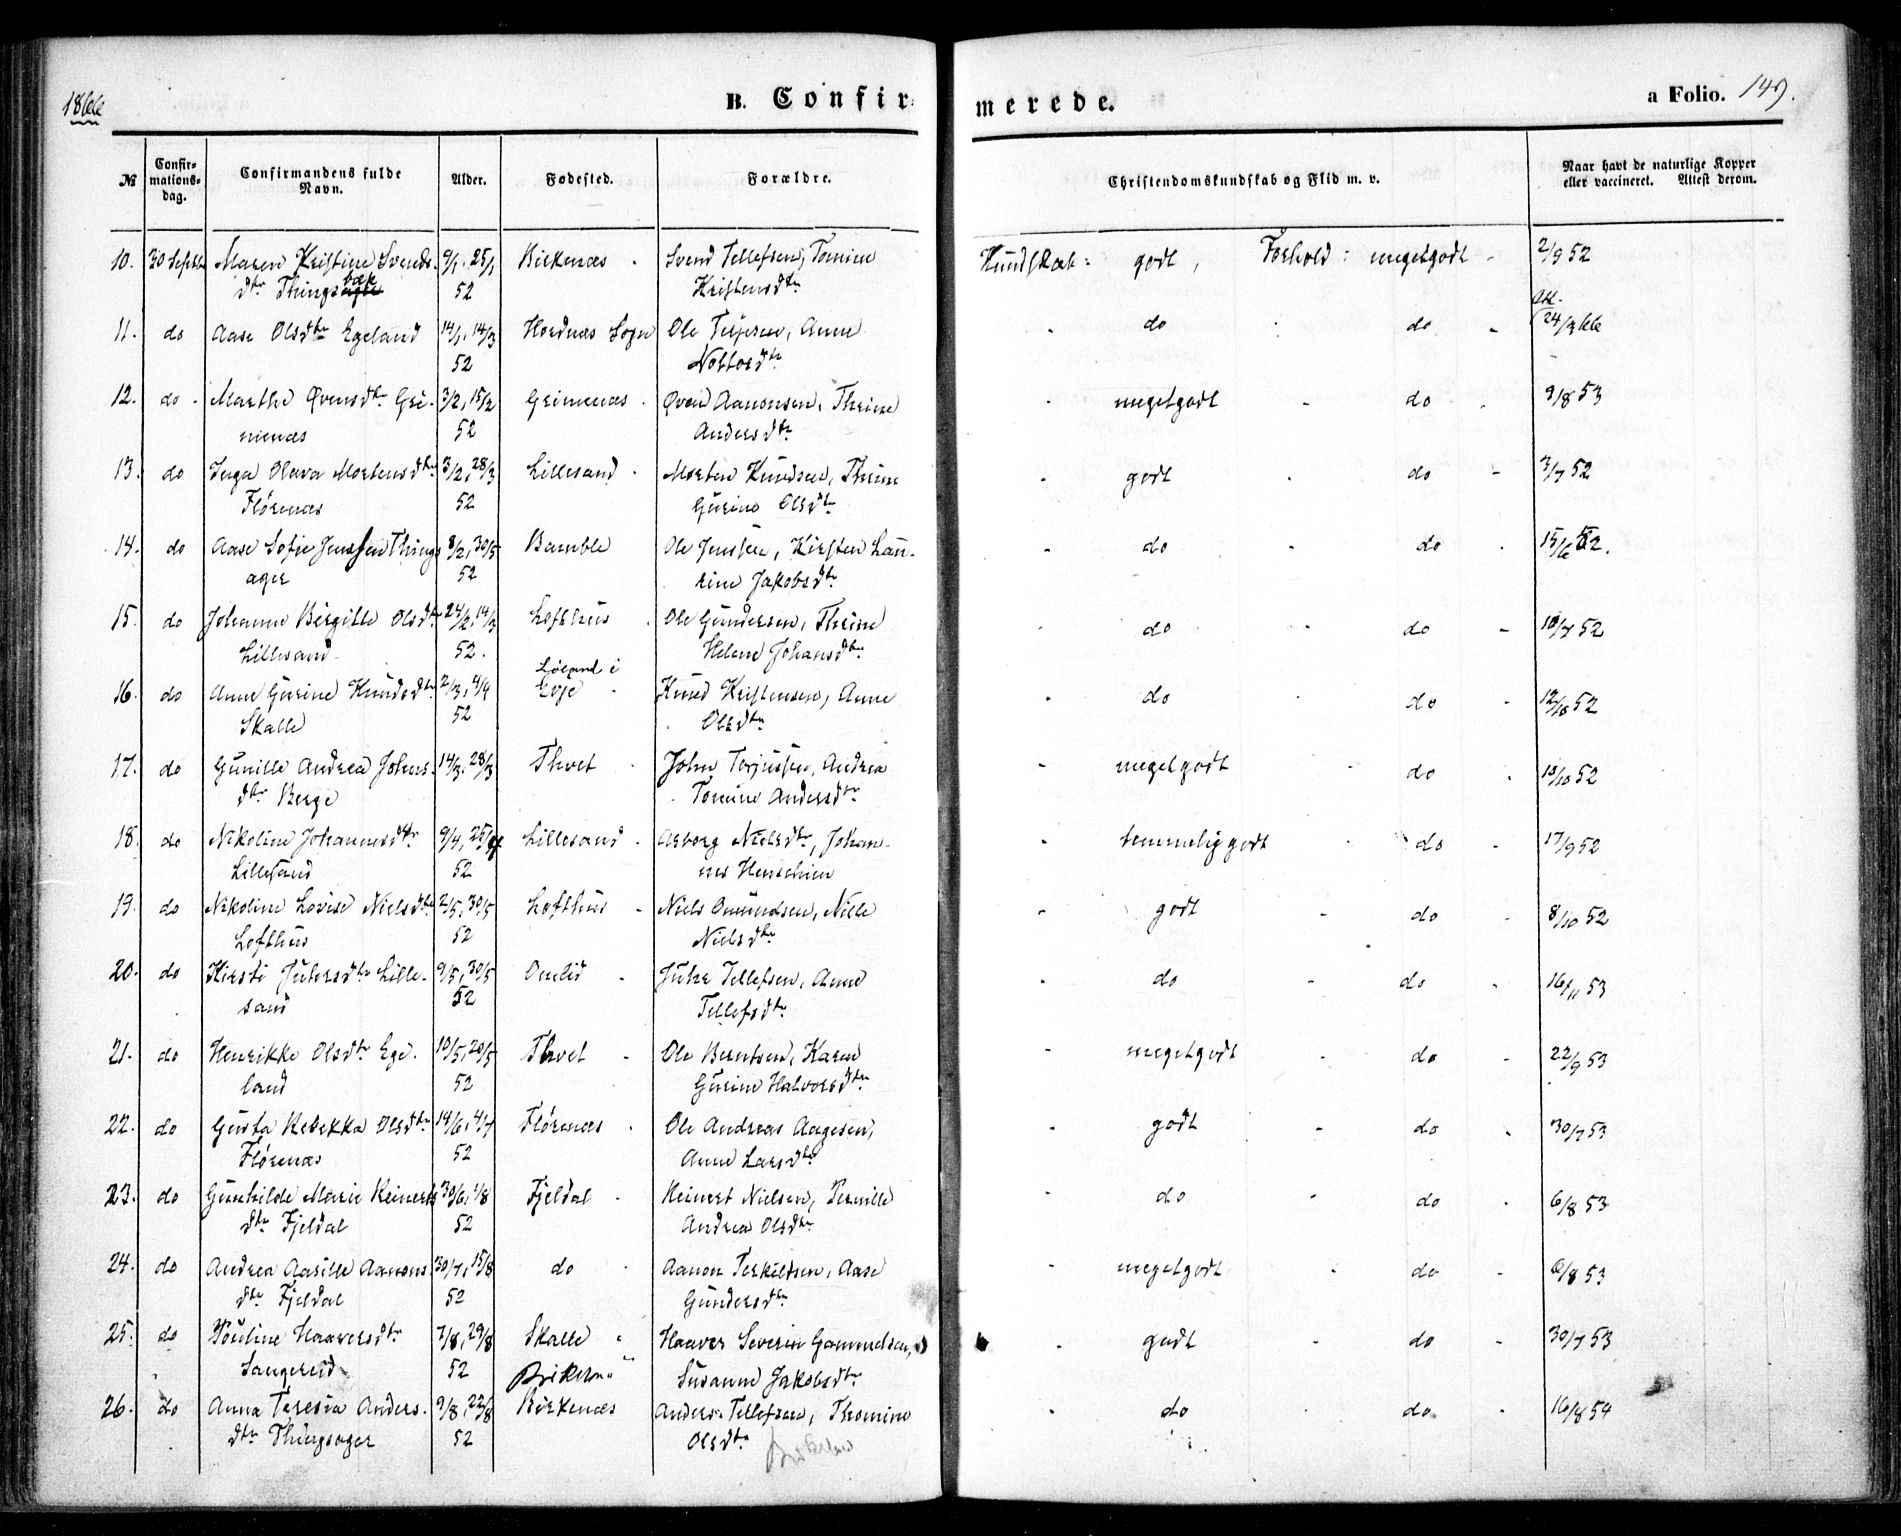 1866
B. Confir-
merede.
a Folio. 149.
№
Confir-
mations-
dag.
Confirmandens fulde
Navn.
Alder.
Fødested.
Forældre.
Christendomskundskab og Flid m. v.
Naar havt de naturlige Kopper
eller vaccineret. Attest derom.
10. 30 Septbr Maren Kristine Svends- 9/1, 25/1 Birkenæs Svend Tellefsen, Tomine Kundskab: godt, Forhold: megetgodt 2/9 52
dtr Thingsbæk 52 Kristensdtr
11. do Aase Olsdtr Egeland 14/1, 14/3 Hordnæs Sogn Ole Terjesen, Anne do do 24/3 66
52
12. do Marthe Øvensdtr Gri- 3/2, 15/2 Grimenæs Øven Aanonsen, Thrine megetgodt do 9/8 53
menæs 52 Andersdtr
13. do Inga Olava Mortensdtr 3/2, 28/3 Lillesand Morten Knudsen, Thrine godt do 3/7 52
Flørenæs 52 Gurine Olsdtr
14. do Aase Sofie Jenssen Things- 8/2, 30/5 Bamble Ole Jenssen, Kirsten Lau- do do 15/6 52.
ager 52 rine Jakobsdtr
15. do Johanne Birgitte Olsdtr 24/2, 14/3 Lofthus Ole Gundersen, Thrine do do 10/7 52
Lillesand 52. Helene Johansdtr
Løland i
16. do Anne Gurine Knudsdtr 2/3, 4/4 Evje Knud Kristensen, Anne do do 12/10 52
Skalle 52 Olsdtr
17. do Gunille Andrea Johns- 14/3, 28/3 Thvet John Terjussen, Andrea megetgodt do 13/10 52
dtr Berge Tomine Andersdtr
18. do Nikoline Johannesdtr 9/4, 25/4 Lillesand Asborg Nielsdtr, Johan- temmelig godt do 17/9 52
Lillesand 52 nes Henschien
19. do Nikoline Lovise Nielsdtr 2/5, 30/5 Lofthus Niels Omundsen, Nille godt do 8/10 52
Lofthus 52 Nielsdtr
20. do Kirsti Julersdtr Lille- 9/5, 30/5 Omlid Tellefsen, Anne do do 16/11 53
sand 52 Tellefsdtr
21. do Henrikke Olsdtr Ege- 10/5, 20/5 Thvet Ole Berntsen, Karen megetgodt do 22/9 53
land 52 Gurine Halvorsdtr
22. do Gusta Rebekka Olsdtr 14/6, 4/7 Flørenæs Ole Andreas Aagesen, godt do 30/7 53
Flørenæs 52 Anne Larsdtr
23. do Gunhilde Marie Reinerts 30/6, 1/8 Fjeldal Reinert Nielsen, Pernille do do 6/8 53
dtr Fjeldal 52 Andrea Olsdtr
24. do Andrea Aasille Aanons- 30/7, 15/8 do Aanon Terkildsen, Aase megetgodt do 6/8 53
dtr Fjeldal 52 Gundersdtr
25. do Pouline Haaversdtr 7/8, 29/8 Skalle Haaver Severin Gammelsen, godt do 30/7 53
Sangereid 52 Susanne Jakobsdtr
26. do Anna Teresia Anders- 9/8, 22/8 Birkenæs Anders Tellefsen, Thomine do do 16/8 54
dtr Thingsager 52 Olsdtr